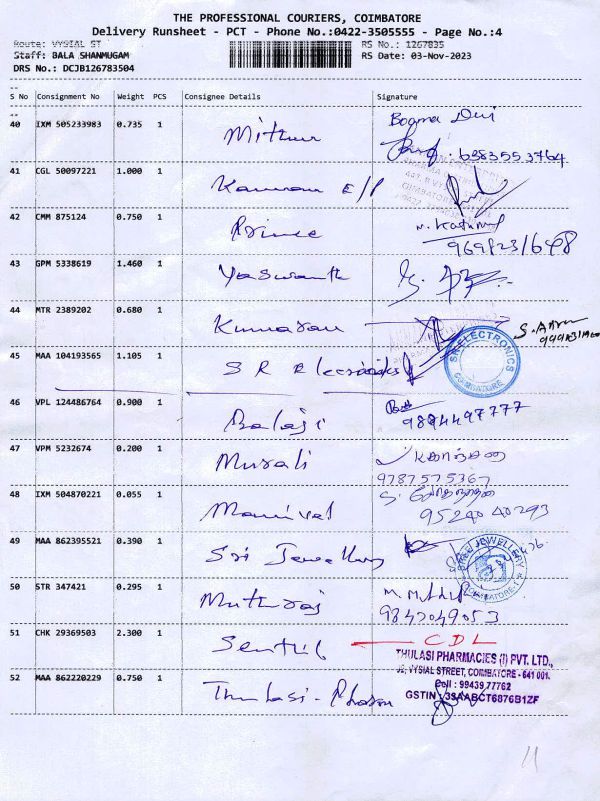 THE PROFESSIONAL COURIERS, COIMBATORE
Delivery Runsheet - PCT - Phone No.:0422-3505555 - Page No.:4
Route: VYSIAL ST
RS No.: 1267835
Staff: BALA SHANMUGAM
RS Date: 03-Nov-2023
DRS No.: DCJB126783504
S No Consignment No Weight PCS Consignee Details Signature
40 IXM 505233983 0.735 1 Mithun
6383553764
41 CGL 50097221 1.000 1 Kannan E/P
42 CMM 875124 0.750 1 Prince
43 GPM 5338619 1.460 1 Yaswanth
44 MTR 2389202 0.680 1 Kumaran
45 MAA 104193565 1.105 1 S R Electronicks
SR ELECTRONICS
COIMBATORE
46 VPL 124486764 0.900 1 Balaji
9894497777
47 VPM 5232674 0.200 1 Murali
9787575367
48 IXM 504870221 0.055 1 Manivel
9524040293
49 MAA 862395521 0.390 1 Sri Jewellery
SREE JEWELLERY
COIMBATORE-1
50 STR 347421 0.295 1 Muthuraj
9842049053
51 CHK 29369503 2.300 1 Senthil CDL
THULASI PHARMACIES (I) PVT. LTD.,
VYSIAL STREET, COIMBATORE - 641 001.
Cell : 99439 77762
GSTIN : 33AABCT6876B1ZF
52 MAA 862220229 0.750 1 Thulasi-Pharm
11